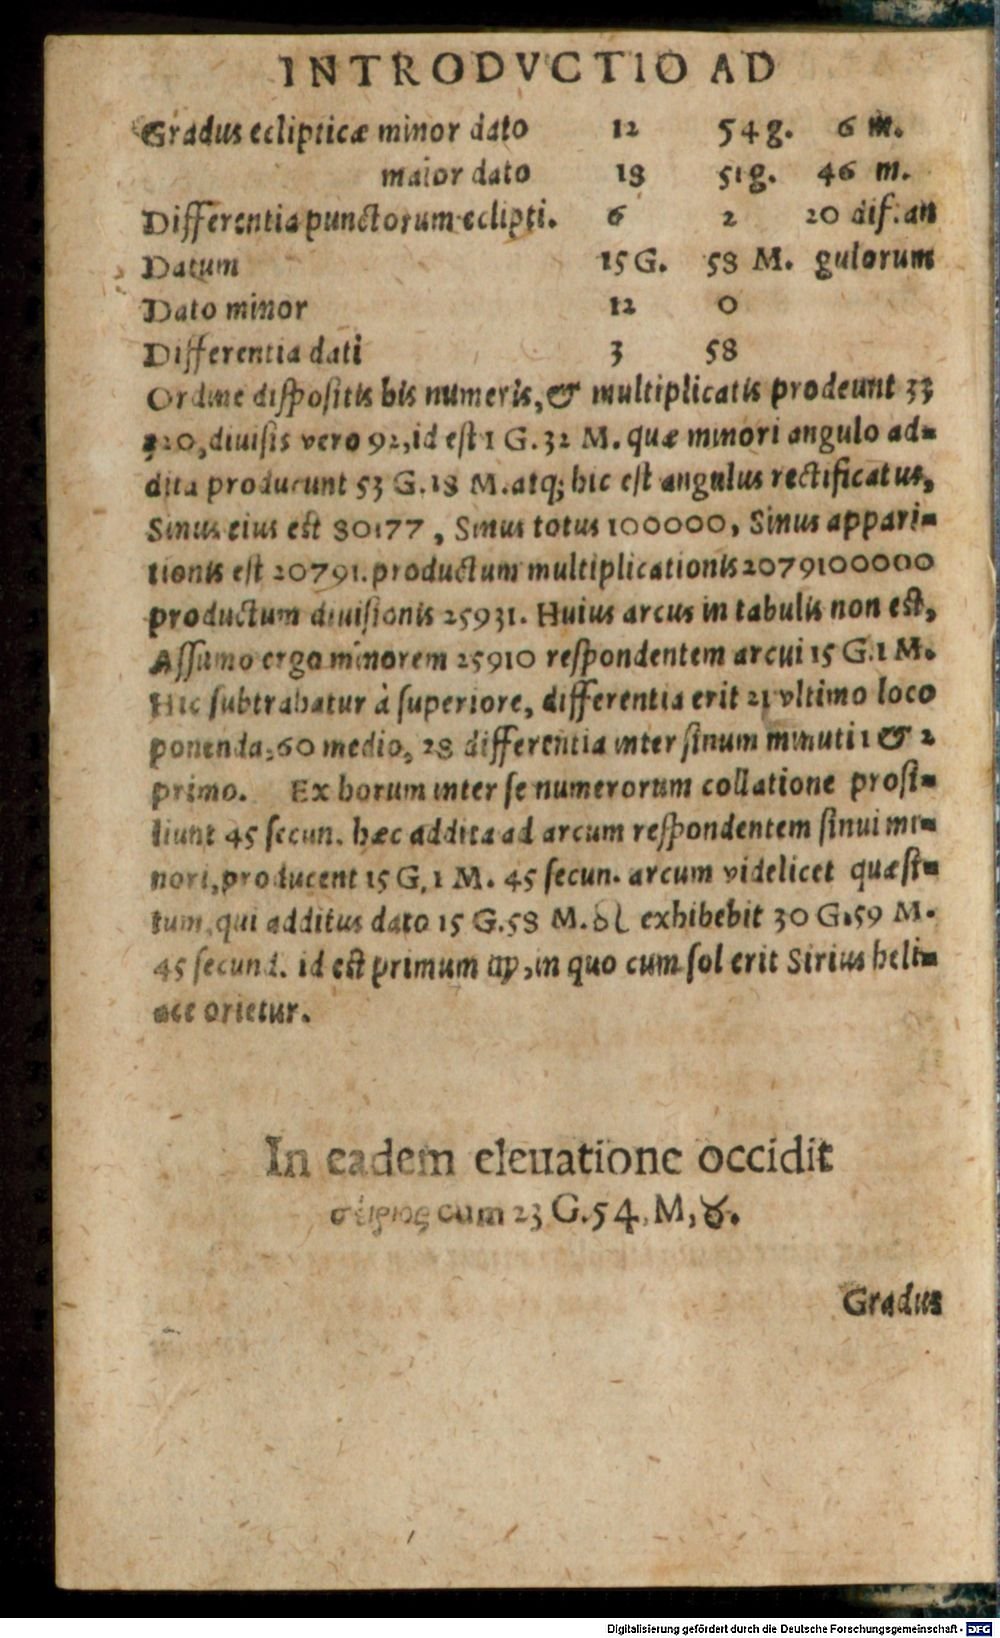 INTRODVCTIO AD
Gradus eclipticæ minor dato 12 54 g. 6 m.
maior dato 18 51 g. 46 m.
Differentia punctorum eclipti. 6 2 20 dif: an
Datum 15 G. 58 M. gulorum
Dato minor 12 0
Differentia dati 3 58
Ordine dispositis his numeris, & multiplicatis prodeunt 33
320, diuisis vero 92, id est 1 G. 32 M. quæ minori angulo ad-
dita producunt 53 G. 18 M. atq; hic est angulus rectificatus,
Sinus eius est 80177, Sinus totus 100000, Sinus appari-
tionis est 20791. productum multiplicationis 2079100000
productum diuisionis 25931. Huius arcus in tabulis non est,
Assumo ergo minorem 25910 respondentem arcui 15 G. 1 M.
Hic subtrahatur à superiore, differentia erit 21 vltimo loco
ponenda, 60 medio, 28 differentia inter sinum minuti 1 & 2
primo. Ex horum inter se numerorum collatione prosi-
liunt 45 secun. hæc addita ad arcum respondentem sinui mi-
nori, producent 15 G, 1 M. 45 secun. arcum videlicet quæsi-
tum, qui additus dato 15 G. 58 M. ♌ exhibebit 30 G. 59 M.
45 secund. id est primum ♍, in quo cum sol erit Sirius heli-
ace orietur.
In eadem eleuatione occidit
σείριος cum 23 G. 54, M, ♉.
Gradus
Digitalisierung gefördert durch die Deutsche Forschungsgemeinschaft - DFG